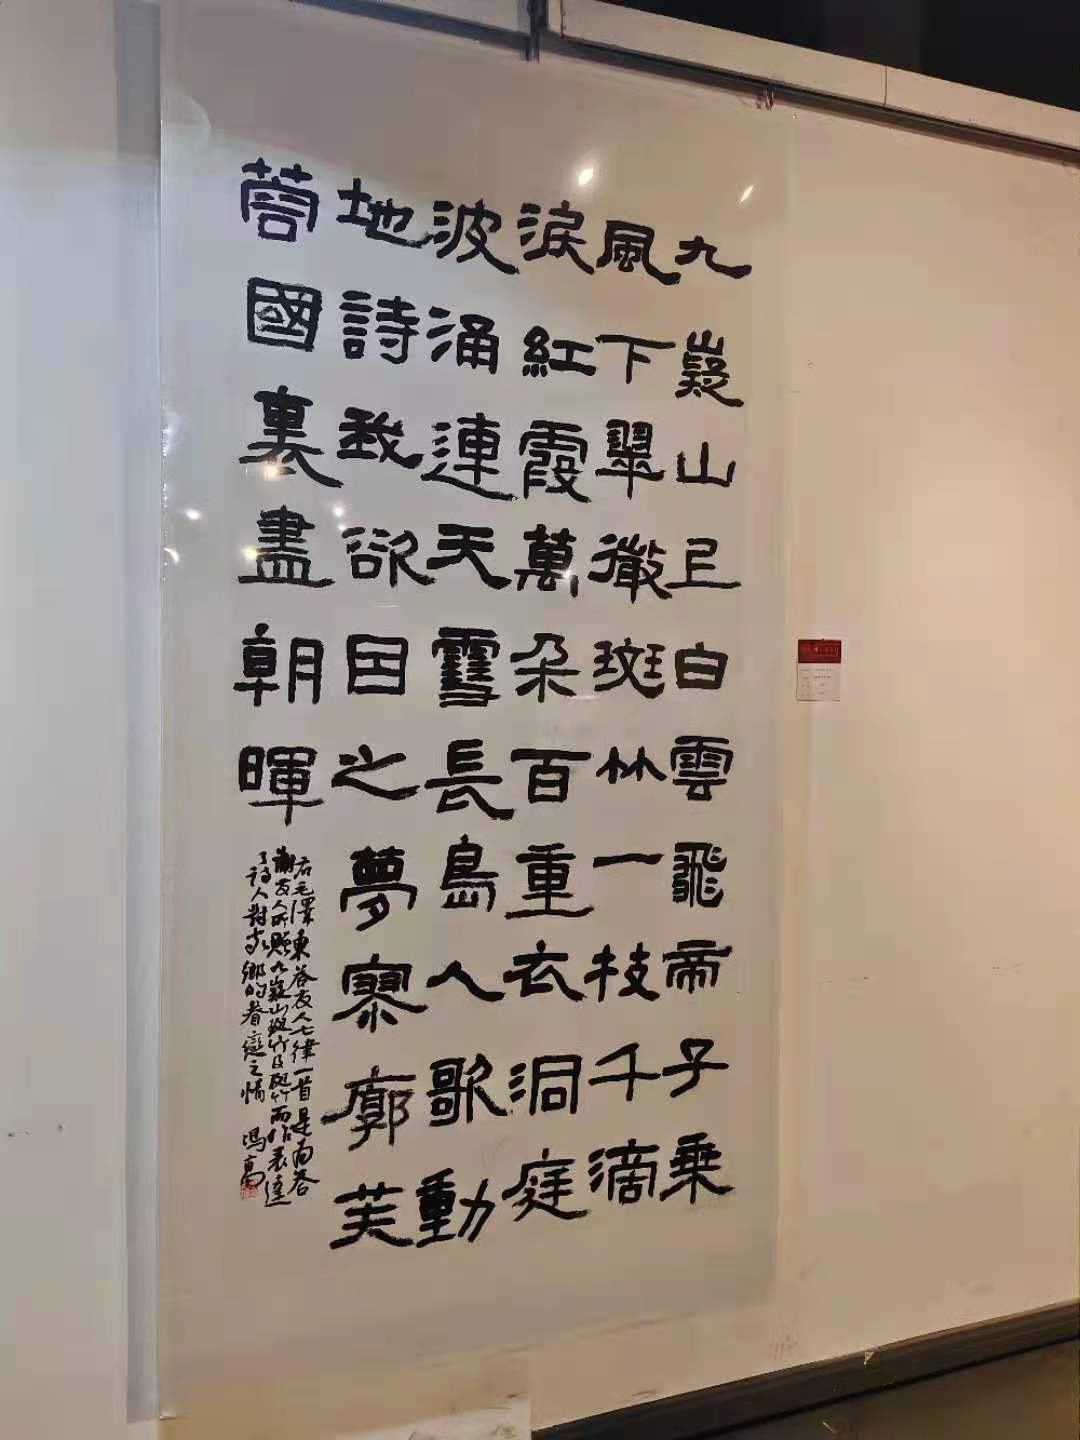 九嶷山上白雲飛帝子乘
風下翠微斑竹一枝千滴
淚紅霞萬朵百重衣洞庭
波涌連天雪長島人歌動
地詩我欲因之夢寥廓芙
蓉國裏盡朝暉
右毛澤東答友人七律一首是為答
謝友人所贈九嶷山斑竹及竹而作表達
了詩人對家鄉的眷戀之情 馮